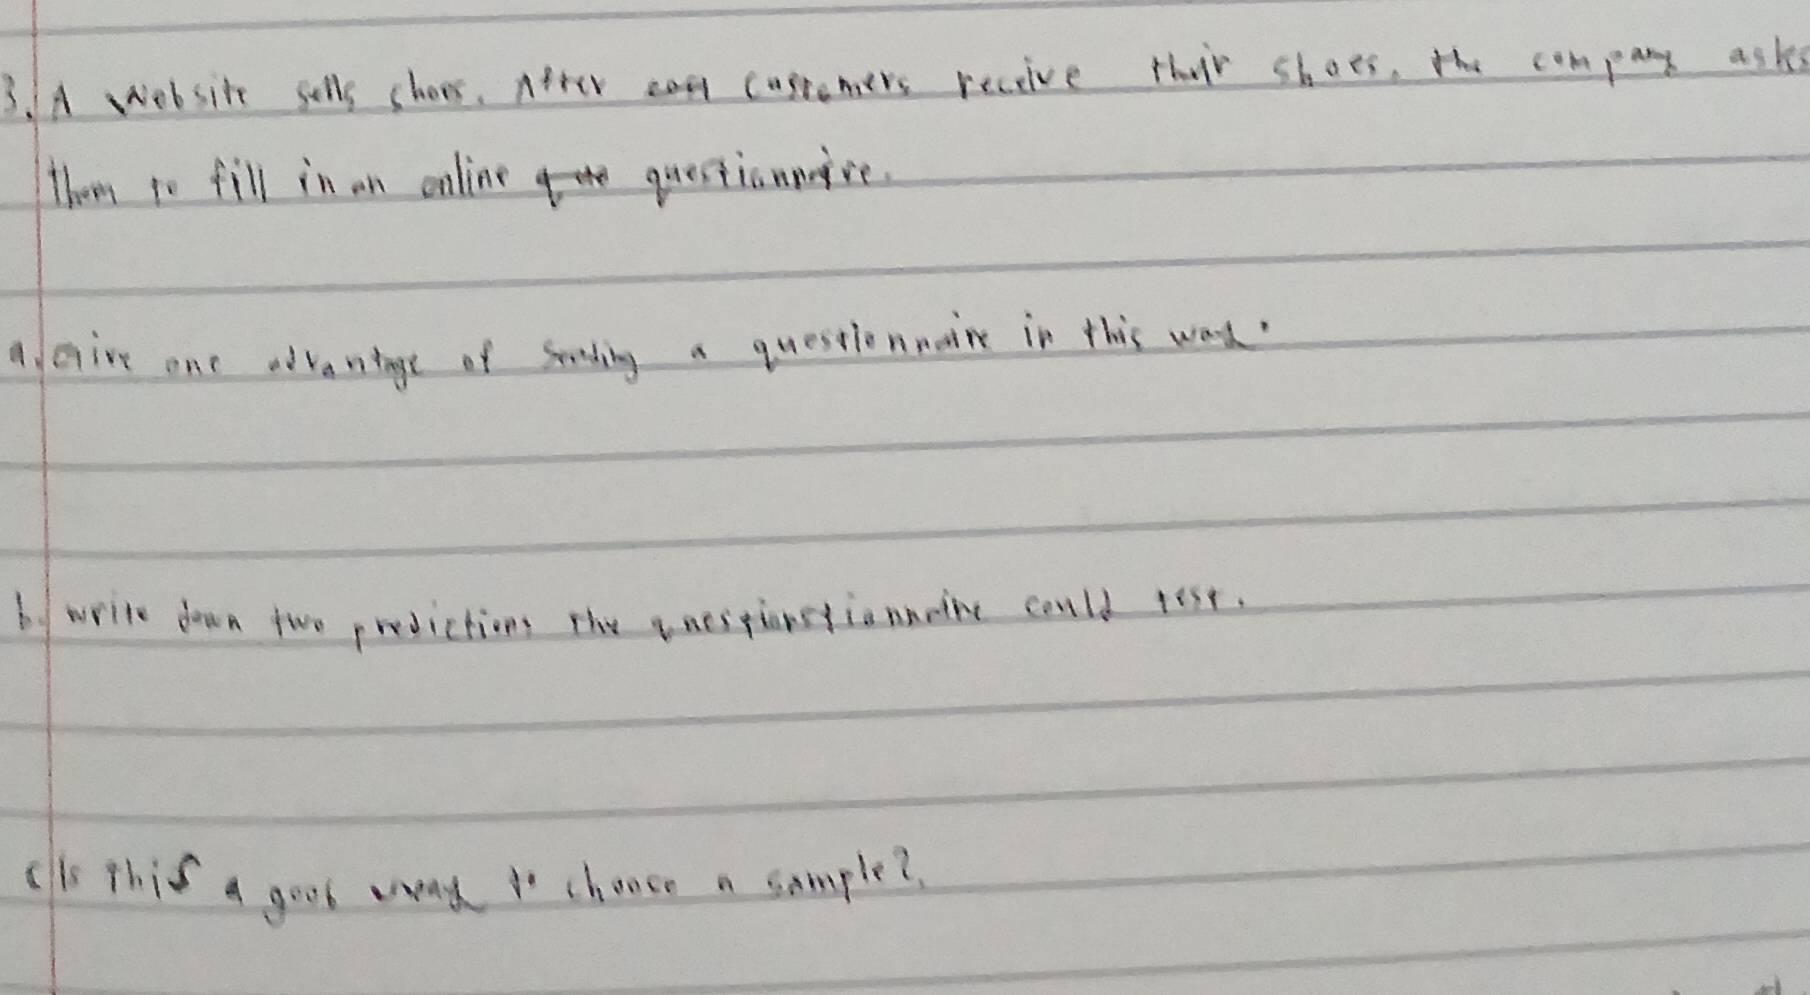 3. A Website sells shoes. After customers receive their shoes, the company asks
them to fill in an online questionnaire.
a. Give one advantage of sending a questionnaire in this way.
b. write down two predictions the questionstionnaire could test.
c Is this a good way to choose a sample?